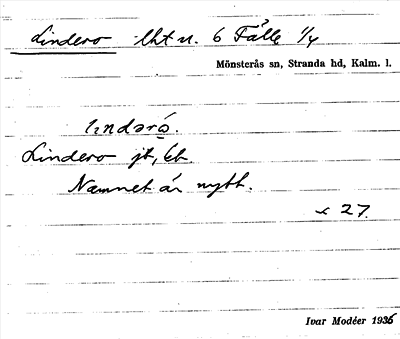 Lindero lht u. 6 Fålle 1/4
Mönsterås sn, Stranda hd, Kalm. l.
Lindero jb, Eb.
Namnet är nytt.
27.
Ivar Modéer 1936